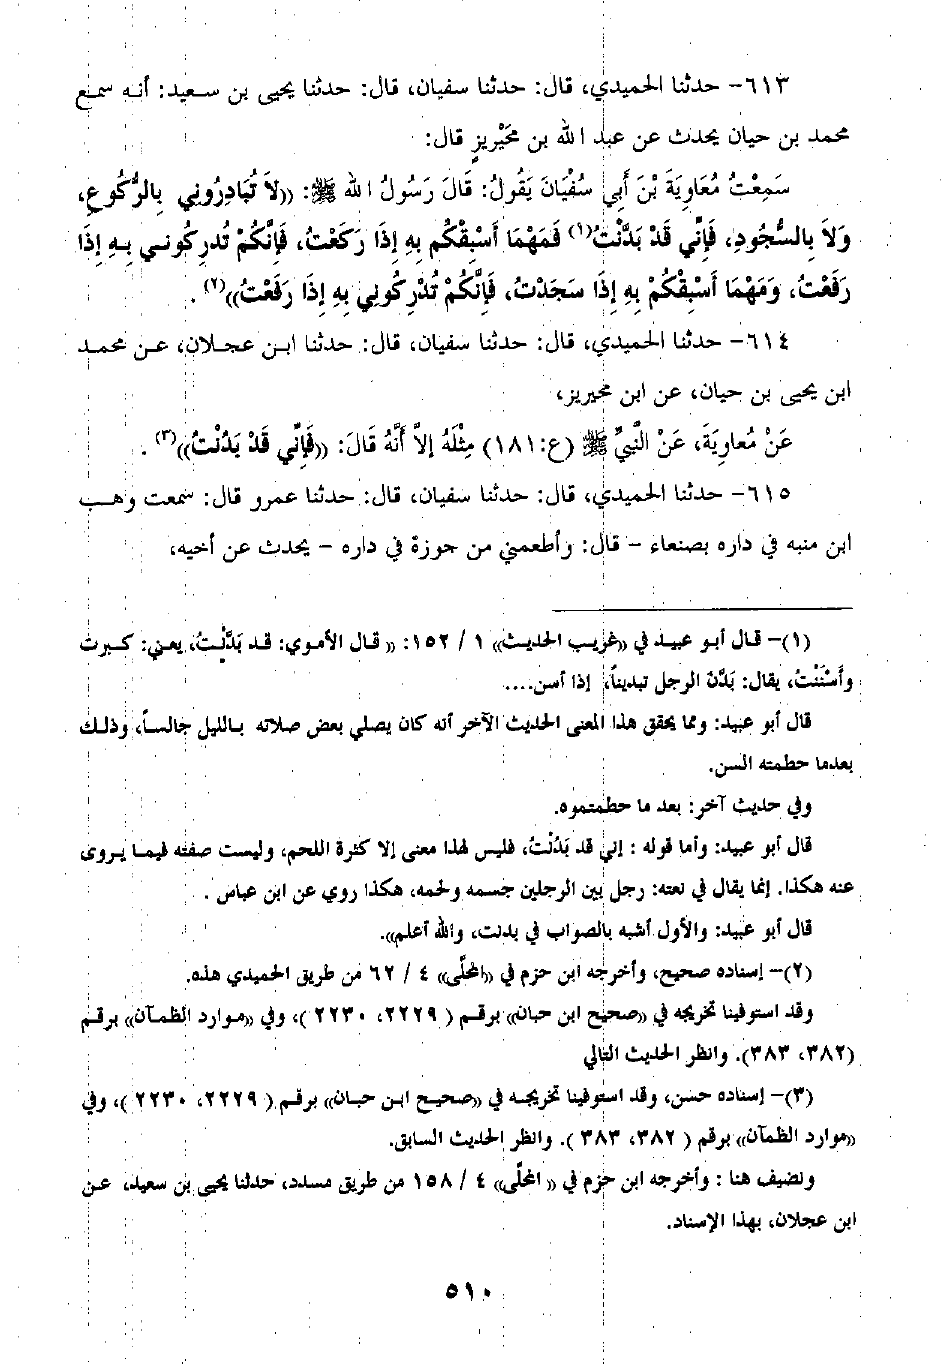 ٦١٣- حدثنا الحميدي، قال: حدثنا سفيان، قال: حدثنا يحيى بن سعيد: أنه سمع
محمد بن حيان يحدث عن عبد الله بن مُحَيْرِيزٍ قال:
سَمِعْتُ مُعَاوِيَةَ بْنَ أَبِي سُفْيَانَ يَقُولُ: قَالَ رَسُولُ الله ﷺ: ((لاَ تُبَادِرُونِي بِالرُّكُوعِ،
وَلاَ بِالسُّجُودِ، فَإِنِّي قَدْ بَدَّنْتُ(١) فَمَهْمَا أَسْبِقْكُم بِهِ إِذَا رَكَعْتُ، فَإِنَّكُمْ تُدرِكُونِي بِهِ إِذَا
رَفَعْتُ، وَمَهْمَا أَسْبِقْكُمْ بِهِ إِذَا سَجَدْتُ، فَإِنَّكُمْ تُدْرِكُونِي بِهِ إِذَا رَفَعْتُ))(٢) .
٦١٤- حدثنا الحميدي، قال: حدثنا سفيان، قال: حدثنا ابن عجلان، عن محمد
ابن يحيى بن حيان، عن ابن محيريز،
عَنْ مُعاوِيَةَ، عَنْ النَّبِيِّ ﷺ (ع:١٨١) مِثْلَهُ إلاَّ أَنَّهُ قَالَ: ((فَإِنِّي قَدْ بَدُنْتُ))(٣) .
٦١٥- حدثنا الحميدي، قال: حدثنا سفيان، قال: حدثنا عمرو قال: سمعت وهب
ابن منبه في داره بصنعاء - قال: وأطعمني من جوزة في داره - يحدث عن أخيه،
(١)- قال أبو عبيد في ((غريب الحديث)) ١ / ١٥٢: (( قال الأموي: قد بَدَّنْتُ، يعني: كبرت
وأَسْنَنْتُ، يقال: بَدَّنَ الرجل تبديناً، إذا أسن....
قال أبو عبيد: ومما يحقق هذا المعنى الحديث الآخر أنه كان يصلي بعض صلاته بالليل جالساً، وذلك
بعدما حطمته السن.
وفي حديث آخر: بعد ما حطمتموه.
قال أبو عبيد: وأما قوله : إني قد بَدُنْتُ، فليس لهذا معنى إلا كثرة اللحم، وليست صفته فيما يروى
عنه هكذا. إنما يقال في نعته: رجل بين الرجلين جسمه ولحمه، هكذا روي عن ابن عباس .
قال أبو عبيد: والأول أشبه بالصواب في بدنت، والله أعلم)).
(٢)- إسناده صحيح، وأخرجه ابن حزم في ((المحلَّى)) ٤ / ٦٢ من طريق الحميدي هذه.
وقد استوفينا تخريجه في ((صحيح ابن حبان)) برقم ( ٢٢٢٩، ٢٢٣٠ )، وفي ((موارد الظمآن)) برقم
(٣٨٢، ٣٨٣). وانظر الحديث التالي
(٣)- إسناده حسن، وقد استوفينا تخريجه في ((صحيح ابن حبان)) برقم ( ٢٢٢٩، ٢٢٣٠ )، وفي
((موارد الظمآن)) برقم ( ٣٨٢، ٣٨٣ ). وانظر الحديث السابق.
ونضيف هنا : وأخرجه ابن حزم في (( المحلَّى)) ٤ / ١٥٨ من طريق مسدد، حدثنا يحيى بن سعيد، عن
ابن عجلان، بهذا الإسناد.
٥١٠